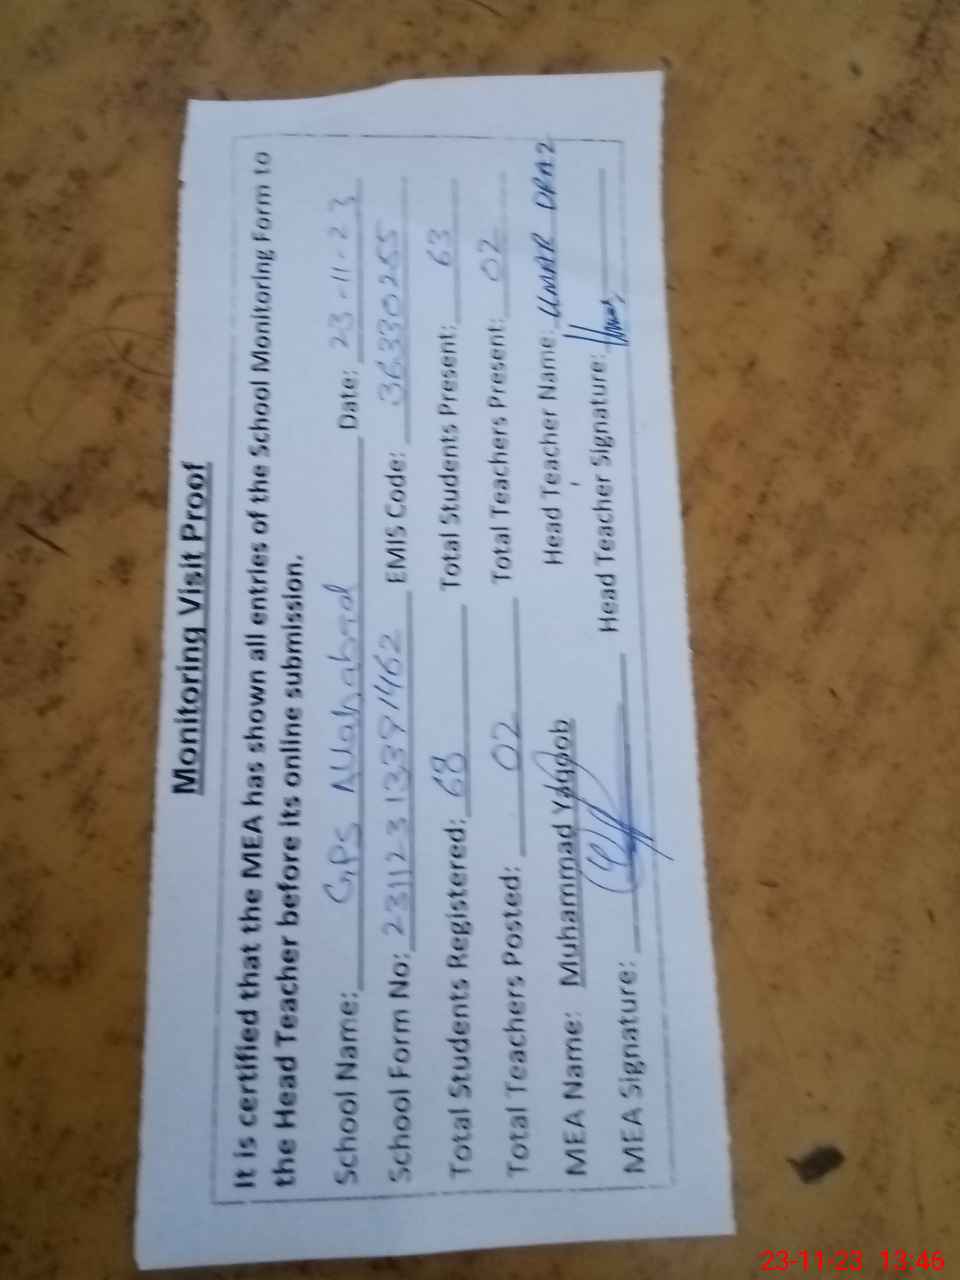 Monitoring Visit Proof
It is certified that the MEA has shown all entries of the School Monitoring Form to
the Head Teacher before its online submission.
School Name: GPS Allahabad Date: 23-11-23
School Form No: 23112313391462 EMIS Code: 36330255
Total Students Registered: 68 Total Students Present: 63
Total Teachers Posted: 02 Total Teachers Present: 02
MEA Name: Muhammad Yaqoob Head Teacher Name: UMAR DRAZ
MEA Signature: Head Teacher Signature: Umar
23-11-23 13:46